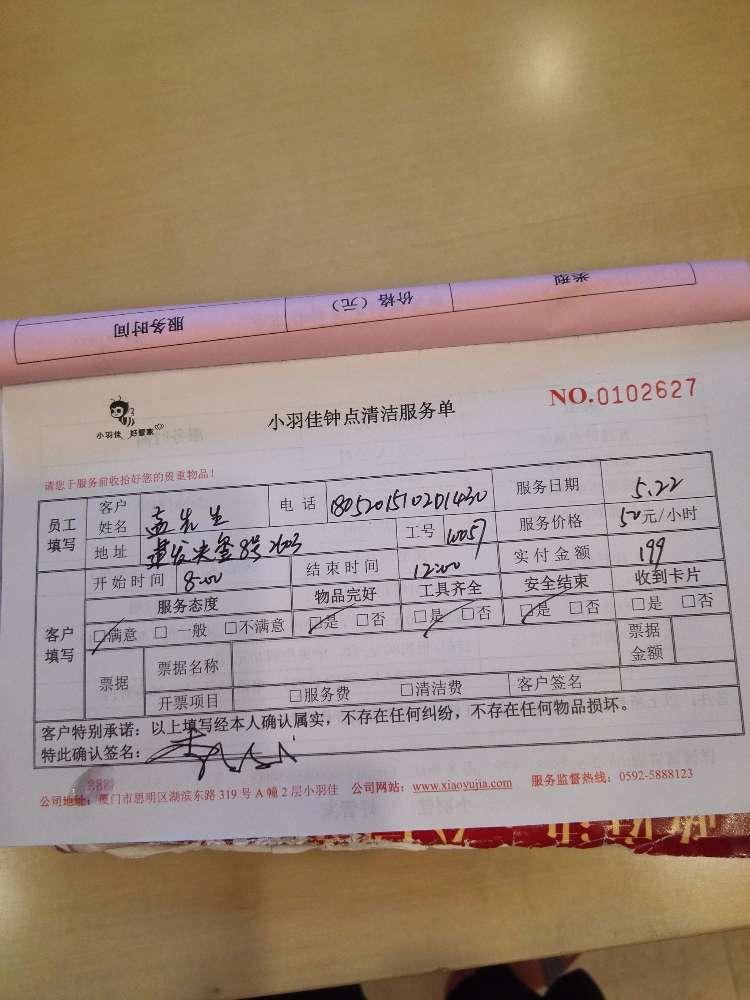 服务时间 价格（元） 类型
小羽佳 好管家
小羽佳钟点清洁服务单
NO.0102627
请您于服务前收拾好您的贵重物品！
员工填写 客户姓名 孟先生 电话 1805201510201430 服务日期 5.22
地址 建发央玺8号2603 工号 服务价格 50元/小时
客户填写 开始时间 8:00 结束时间 12:00 实付金额 199
服务态度 物品完好 工具齐全 安全结束 收到卡片
□满意 □一般 □不满意 □是 □否 □是 □否 □是 □否 □是 □否
票据 票据名称 票据金额
开票项目 □服务费 □清洁费 客户签名
客户特别承诺：以上填写经本人确认属实，不存在任何纠纷，不存在任何物品损坏。
特此确认签名：
公司地址：厦门市思明区湖滨东路319号A幢2层小羽佳 公司网站：www.xiaoyujia.com 服务监督热线：0592-5888123